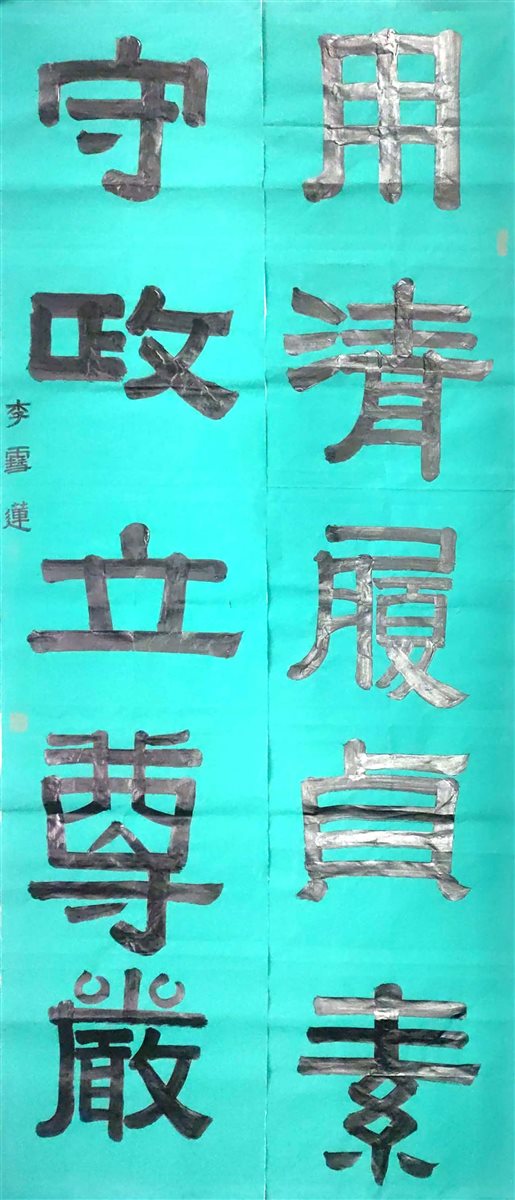 用清履貞素
守政立尊嚴
李雪蓮